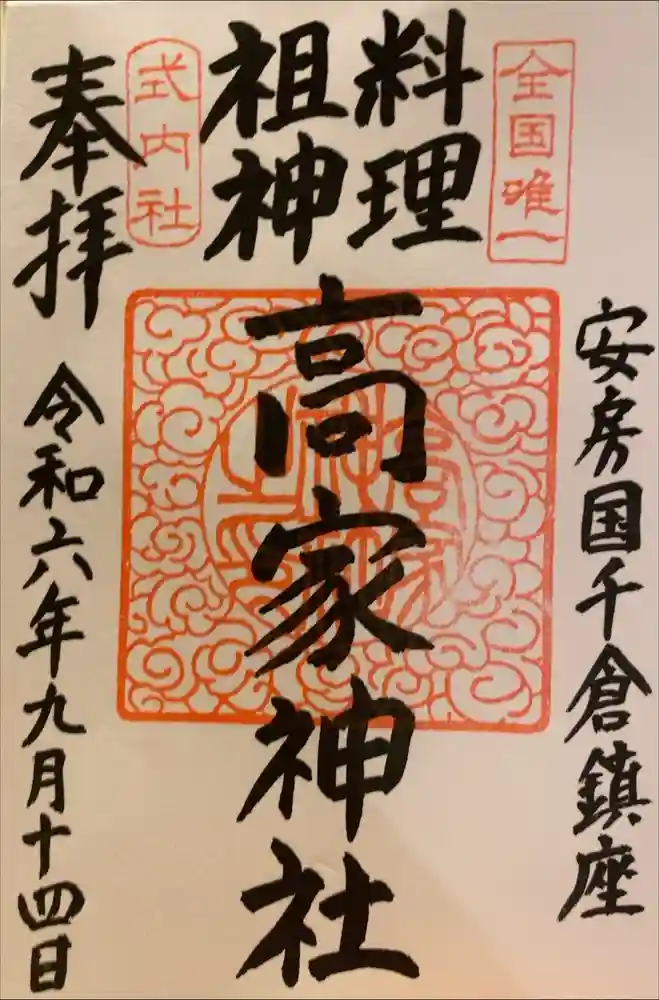 全国唯一
安房国千倉鎮座
料理
祖神
高家神社
式内社
奉拝
令和六年九月十四日